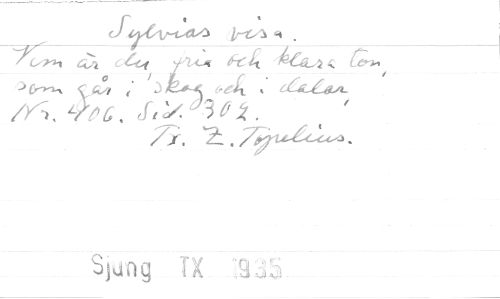 Sylvias visa.
Vem är du, fria och klara ton,
som går i skog och i dalar,
Nr. 406. Sid. 302.
Tx. Z. Topelius.
Sjung TX 1935